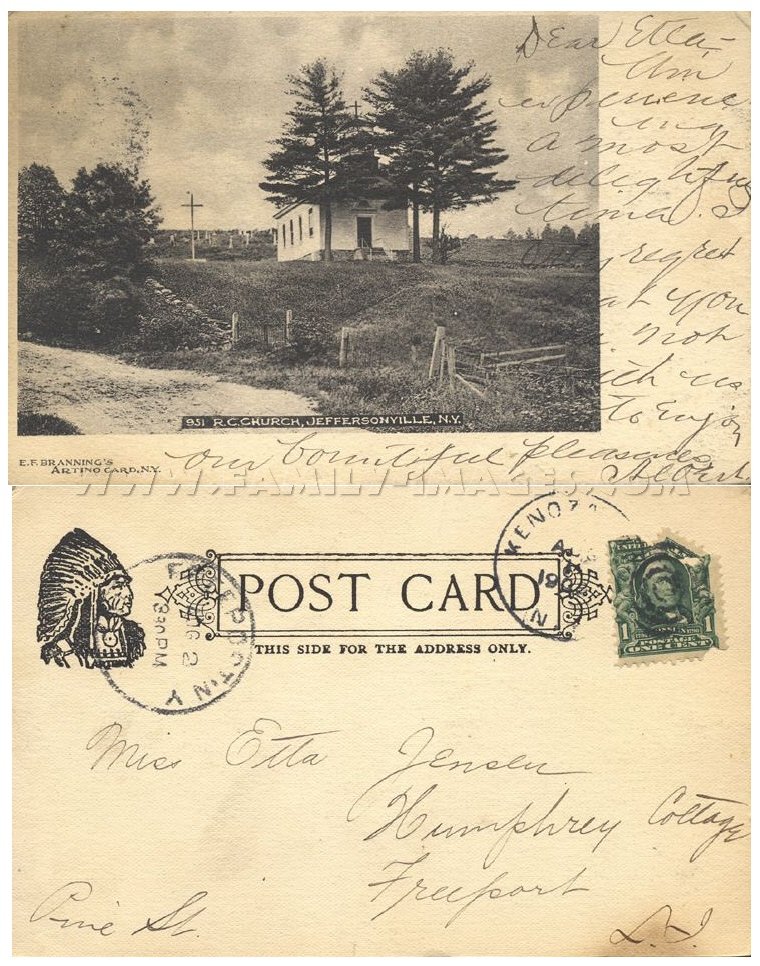 Dear Etta -
Am
experienc
ing
a most
delightful
time. I
only regret
that you
not
with us
to enjoy
our bountiful pleasures
951 R.C. CHURCH, JEFFERSONVILLE, N.Y.
E.F. BRANNING'S
ARTINO CARD, N.Y.
WWW.FAMILY-IMAGES.COM
KENOZA
N
FREEPORT N Y
AUG 2
330 PM
POST CARD
THIS SIDE FOR THE ADDRESS ONLY.
1 POSTAGE 1
ONE CENT
Miss Etta Jensen
Humphrey Cottage
Freeport
Pine St. L. I.